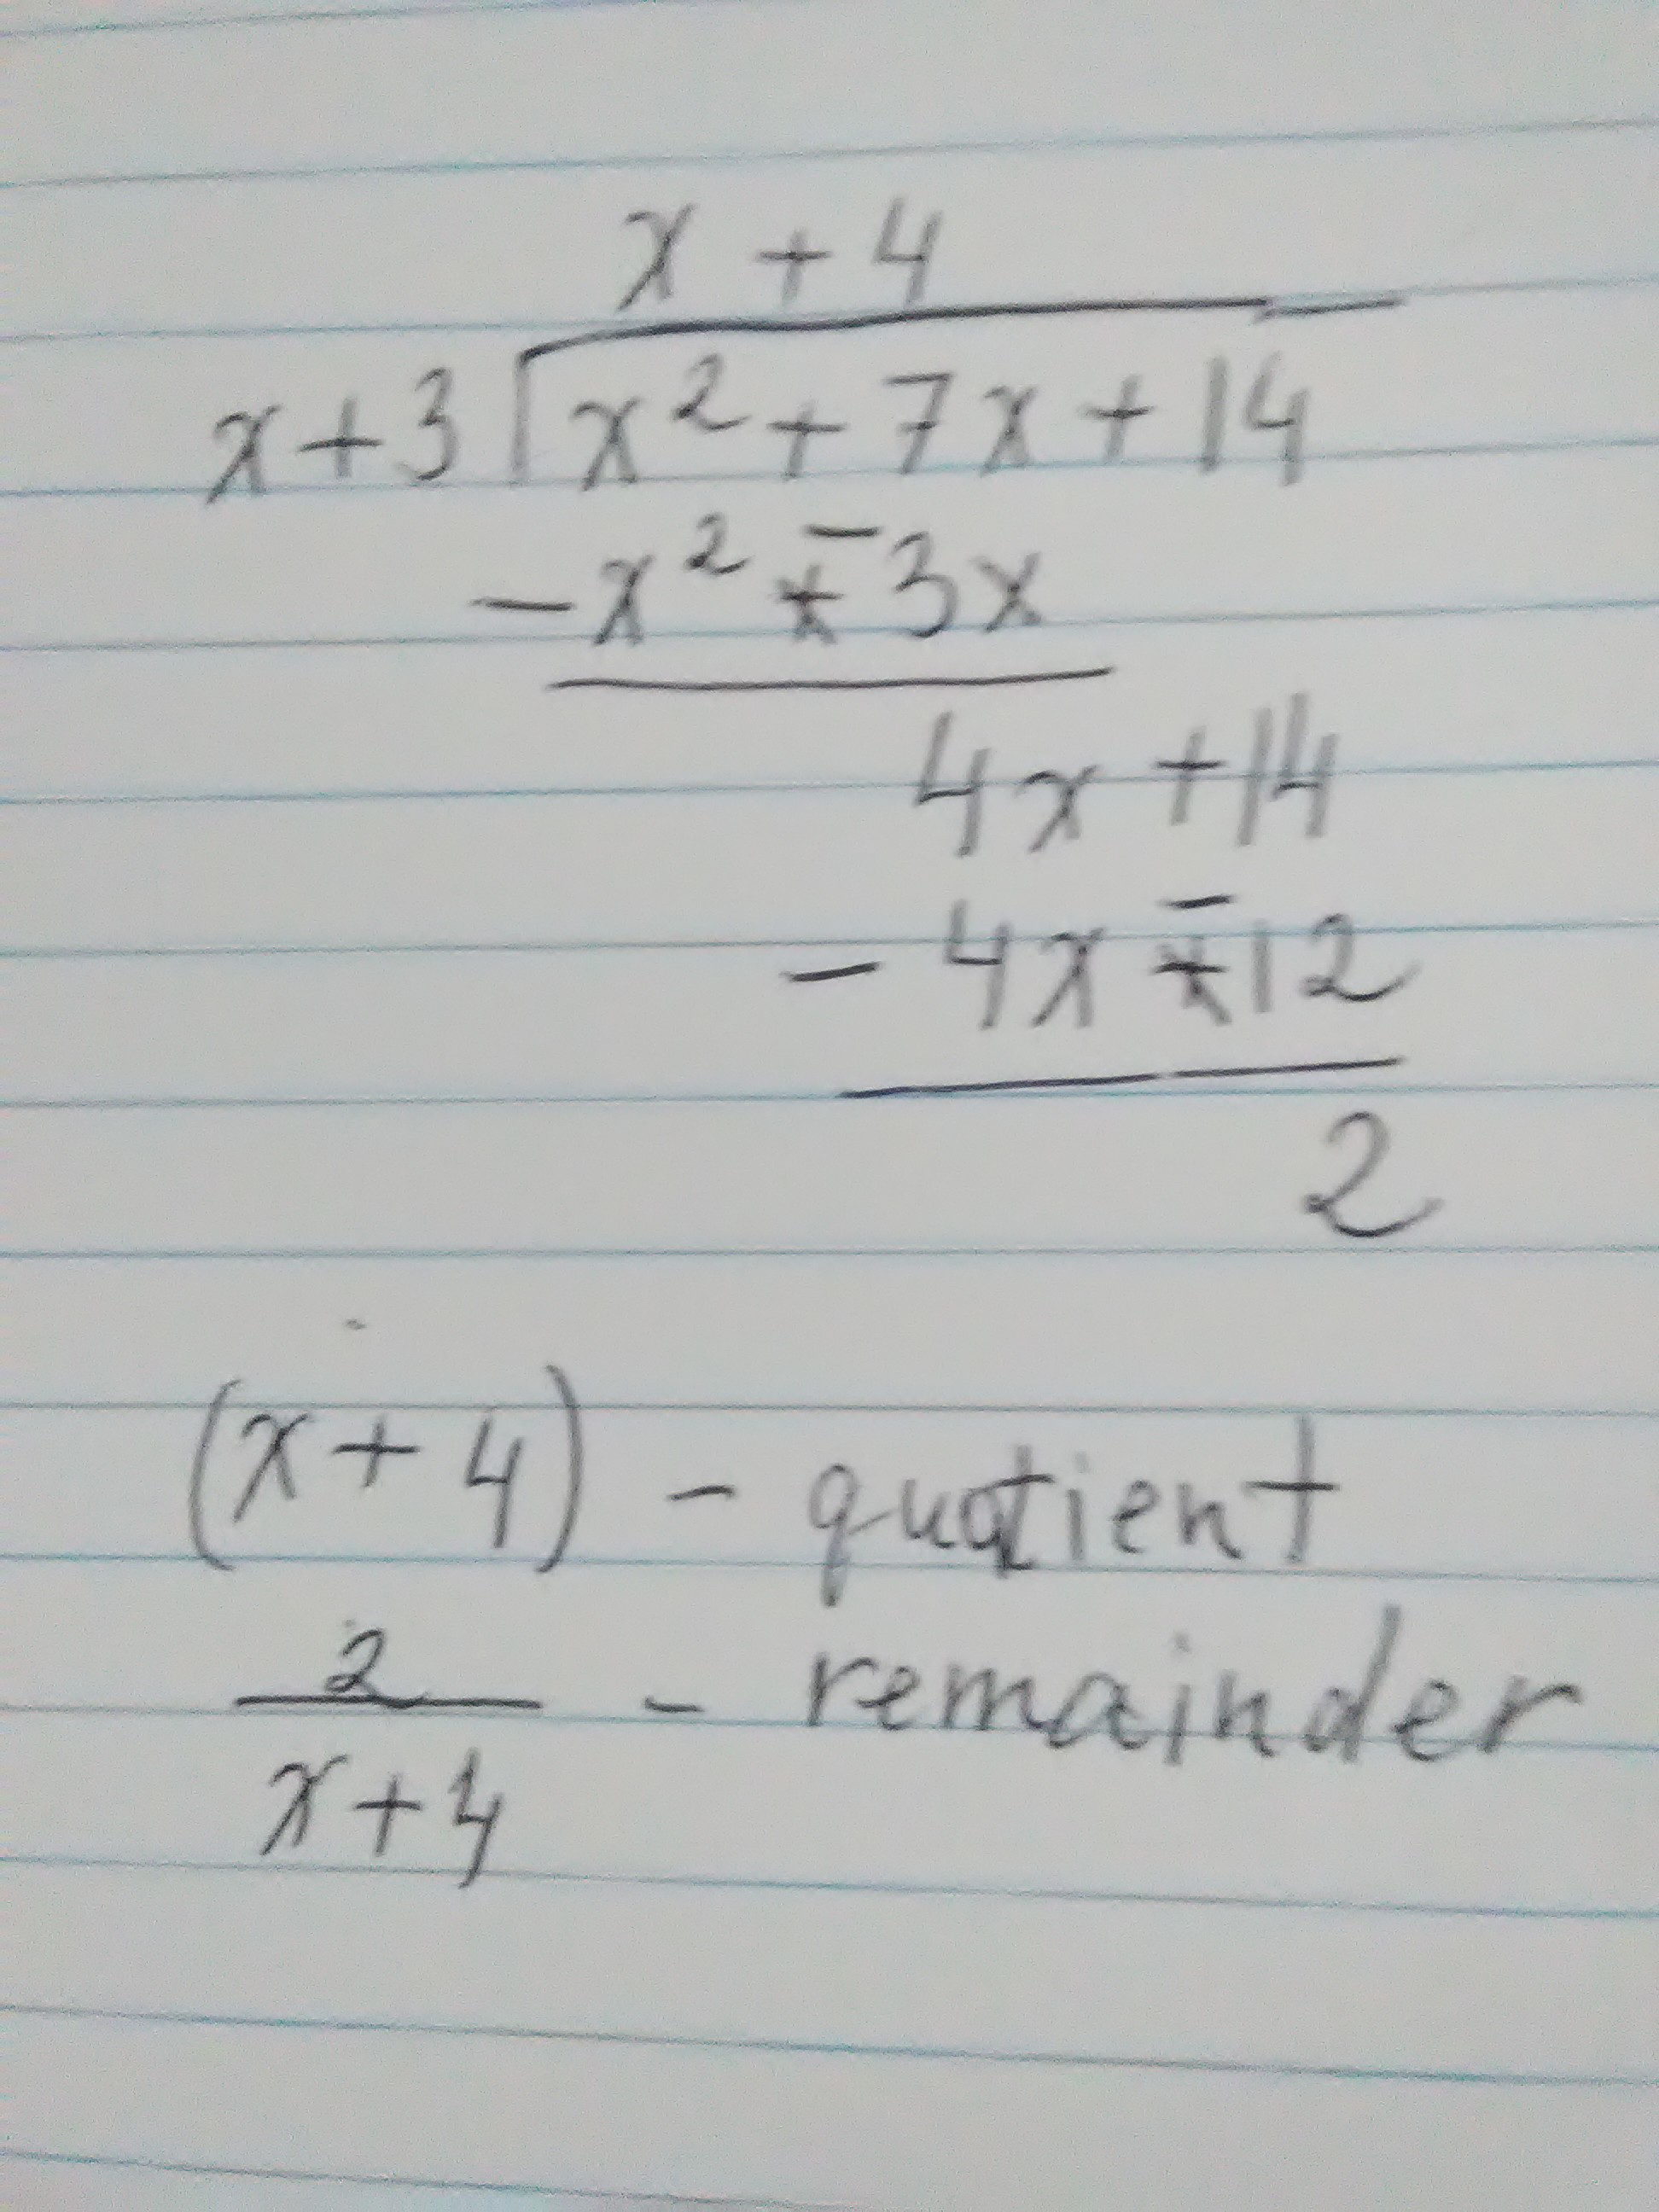 x + 4
x + 3 √x² + 7x + 14
- x² - 3x
4x + 14
- 4x - 12
2
(x + 4) - quotient
2/(x + 4) - remainder